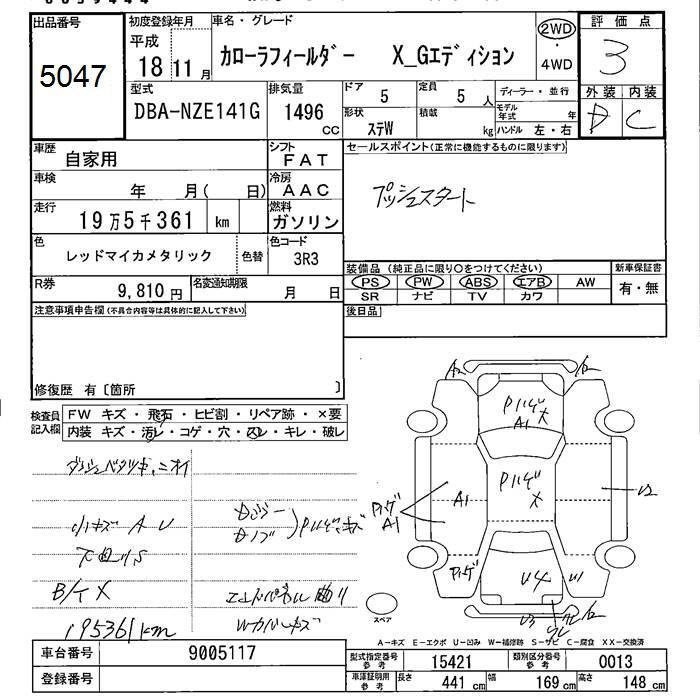 出品番号
5047
初度登録年月
平成
18 11月
車名・グレード
カローラフィールダー X_Gエディション
2WD
・
4WD
評価点
3
型式
DBA-NZE141G
排気量
1496
CC
ドア 5
定員 5 人
ディーラー・並行
モデル年式 年
形状 ステW
積載 kg
ハンドル 左・右
外装 内装
D C
車歴 自家用
シフト FAT
車検 年 月( 日)
冷房 AAC
走行 19万5千361 km
燃料 ガソリン
色 レッドマイカメタリック 色替
色コード 3R3
R券 9,810円
名変通知期限 月 日
セールスポイント(正常に機能するものに限ります)
プッシュスタート
装備品(純正品に限り○をつけてください)
新車保証書
PS PW ABS エアB AW
有・無
SR ナビ TV カワ
後日品
注意事項申告欄(不具合内容等は具体的に記入して下さい)
修復歴 有〔箇所 〕
検査員記入欄
FW キズ・飛石・ヒビ割・リペア跡・×要
内装 キズ・汚レ・コゲ・穴・スレ・キレ・破レ
ダッシュベタツキ、ニオイ
小キズ A U
下回りS
B/T X
195361km
エンドパネル曲り
Wカバーキズ
A2
A2
Pハゲ
A1 X
Pハゲ
X
Pハゲ
A1
A1
U2
Pハゲ
U4
U1
U3
A2
スペア
A-キズ E-エクボ U-凹み W-補修跡 S-サビ C-腐食 XX-交換済
車台番号 9005117
登録番号
型式指定番号参考 15421
類別区分番号参考 0013
車庫証明用参考 長さ 441 cm 幅 169 cm 高さ 148 cm